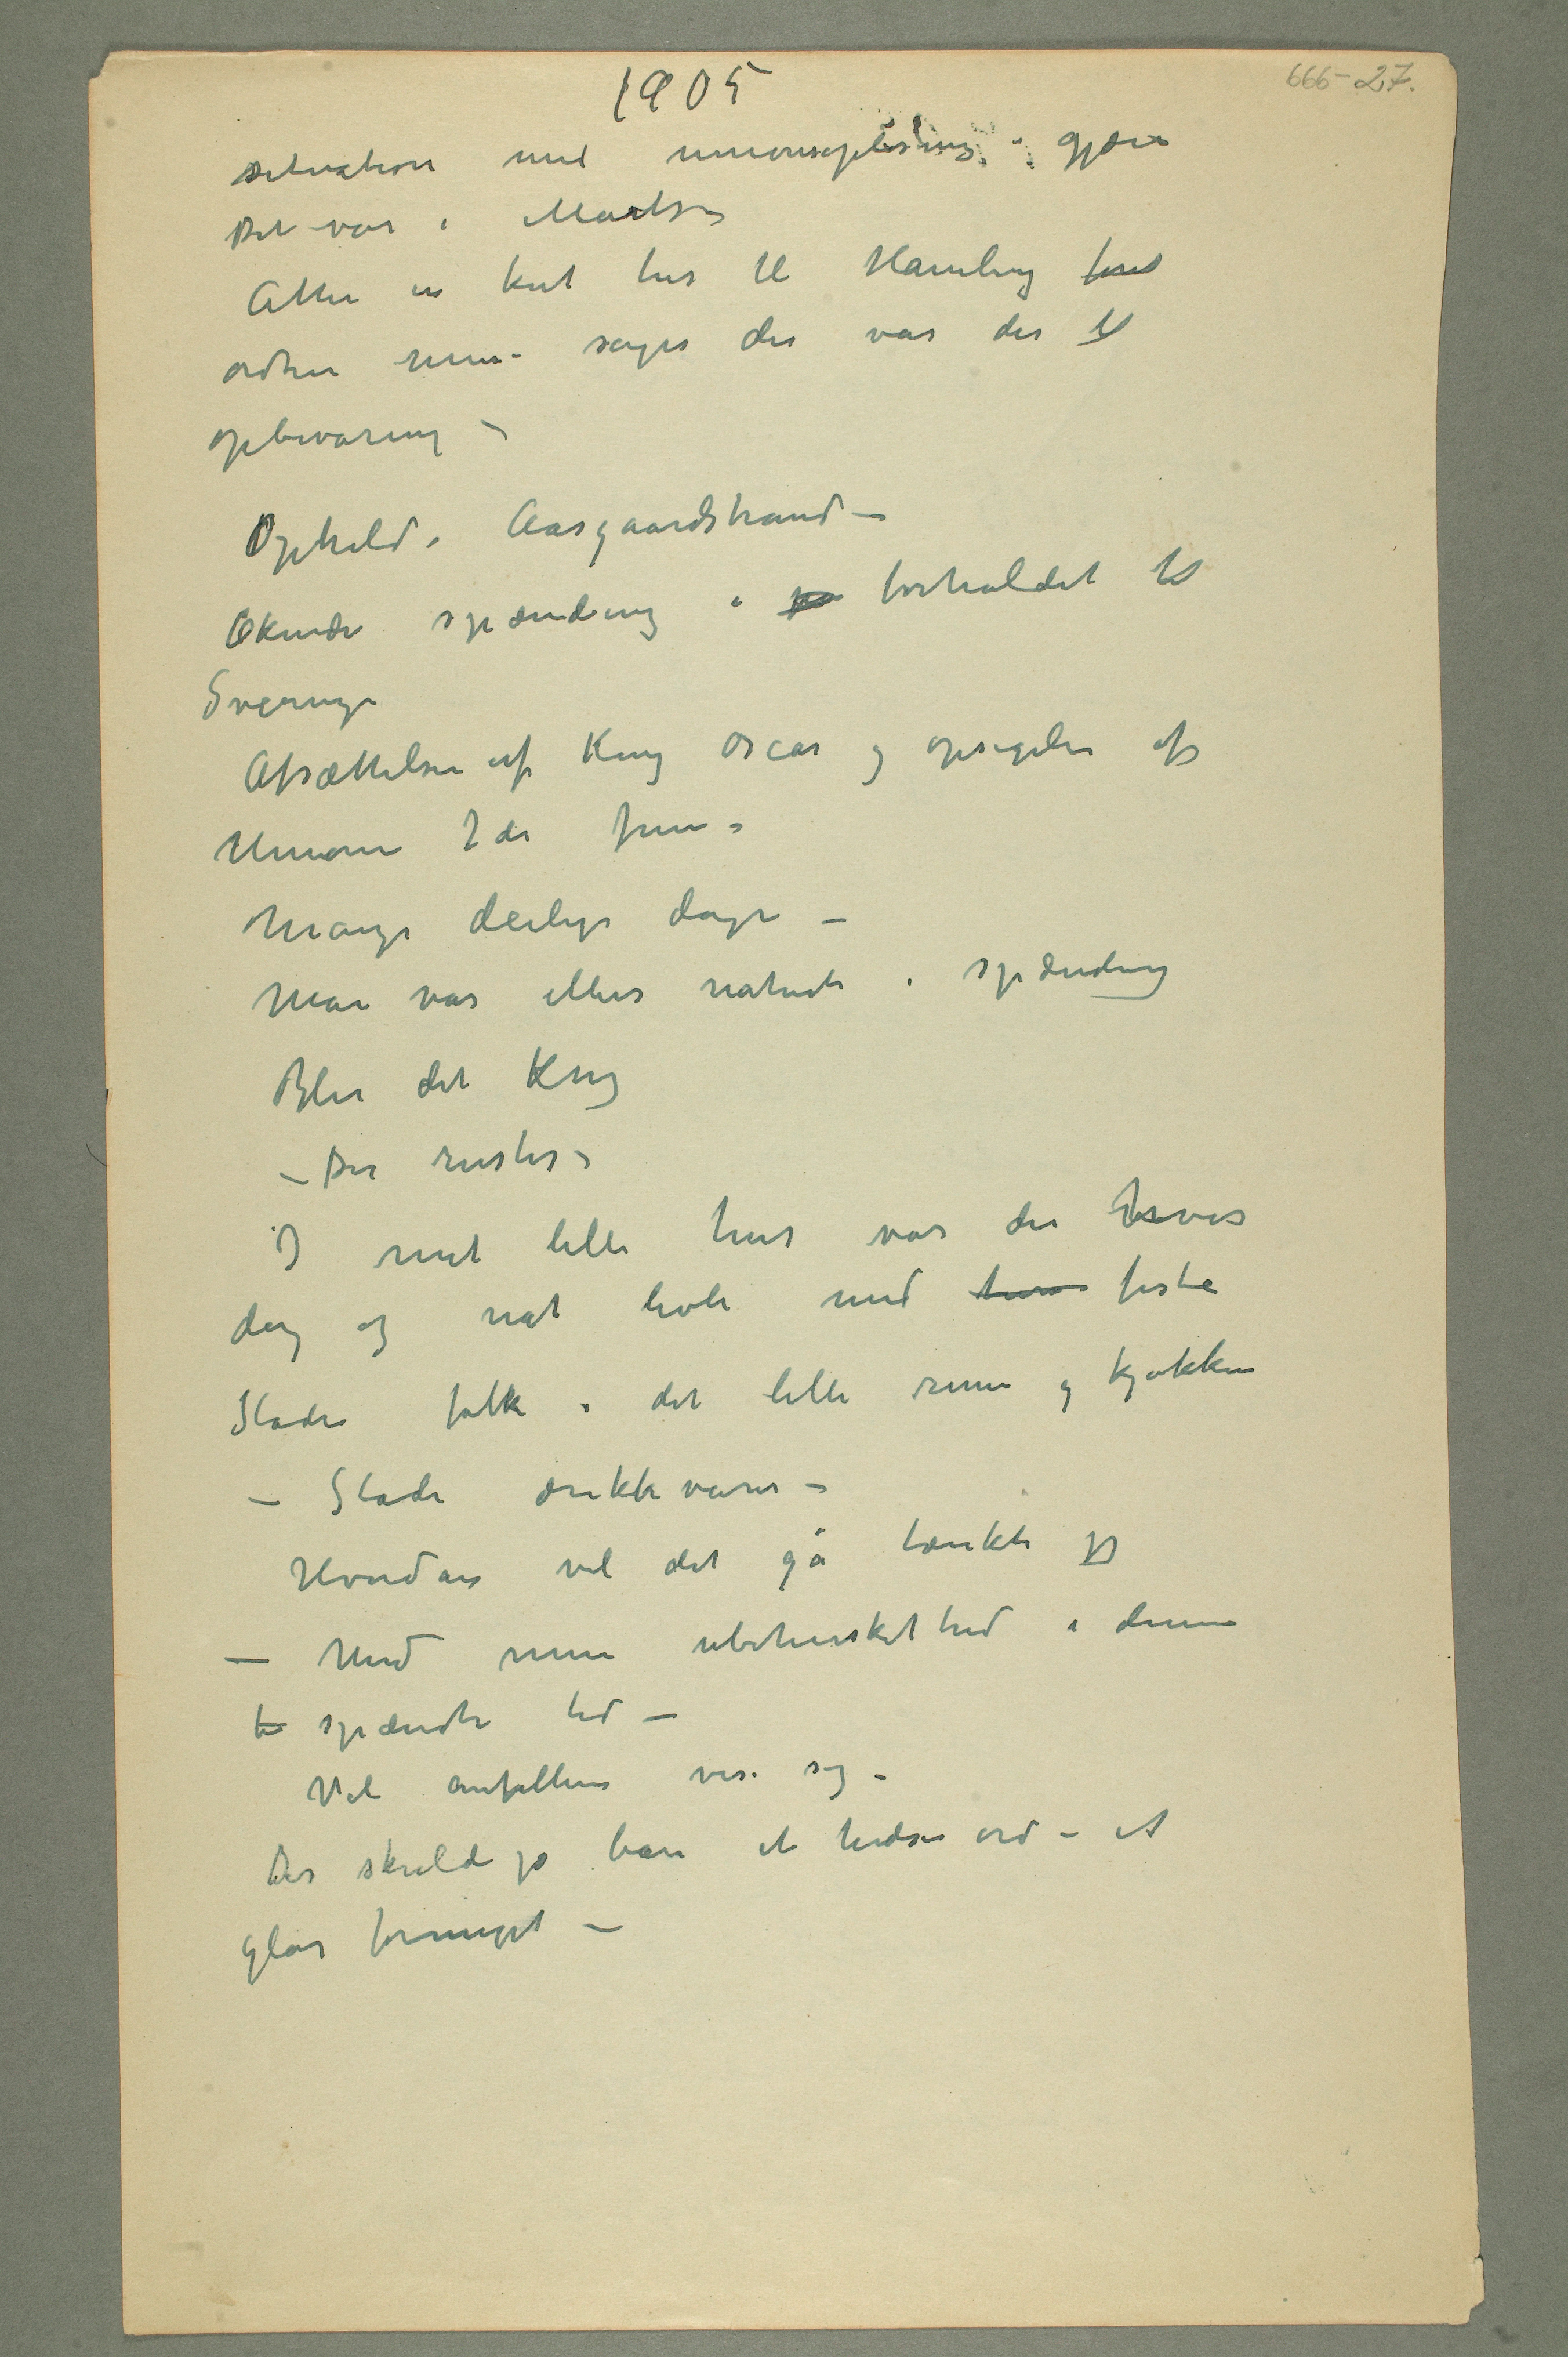 666-27.
1905
situation med unionsopløsning i gjære
Det var i Marts –
Atter en kort tur til Hamburg for at
ordne mine sager der var der til
opbevaring –
Ophold i Aasgaardstrand –
Økende spænding i forholdet til
Sverige
Afsættelsen af Kong Oscar og opsigelse af
Unionen 7de juni
Mange deilige dage –
Man var ellers naturlig i spænding
Blir det Krig
– Der rustes –
I mit lille hus var der hver
dag og nat livligt med feste
Stadig folk i det lille rum og kjøkken
– Stadig drikkevarer –
Hvordan vil det gå tænkte jeg
– Med min ubeherskethed i denne
spændte tid –
Vil anfallene vise sig –
Der skulde jo bare et hidsig ord – et
glas formeget –